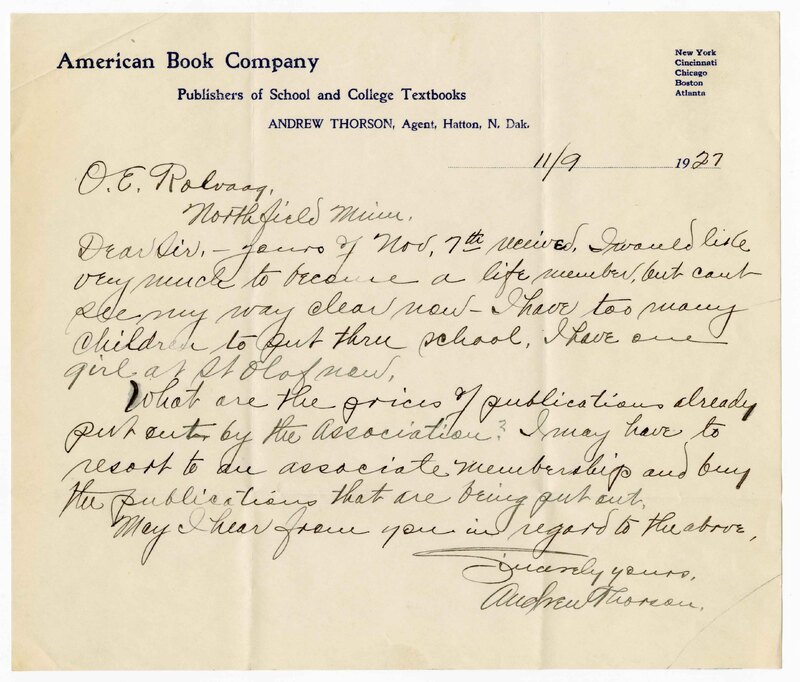 American Book Company
Publishers of School and College Textbooks
ANDREW THORSON, Agent, Hatton, N. Dak.
New York
Cincinnati
Chicago
Boston
Atlanta
11/9 1927
O. E. Rolvaag,
Northfield Minn.
Dear Sir. – Yours of Nov. 7th received. I would like
very much to become a life member, but cant
see my way clear now – I have too many
children to put thru school. I have one
girl at St Olaf now.
What are the prices of publications already
put out by the Association? I may have to
resort to an associate membership and buy
the publications that are being put out.
May I hear from you in regard to the above,
Sincerely yours,
Andrew Thorson.